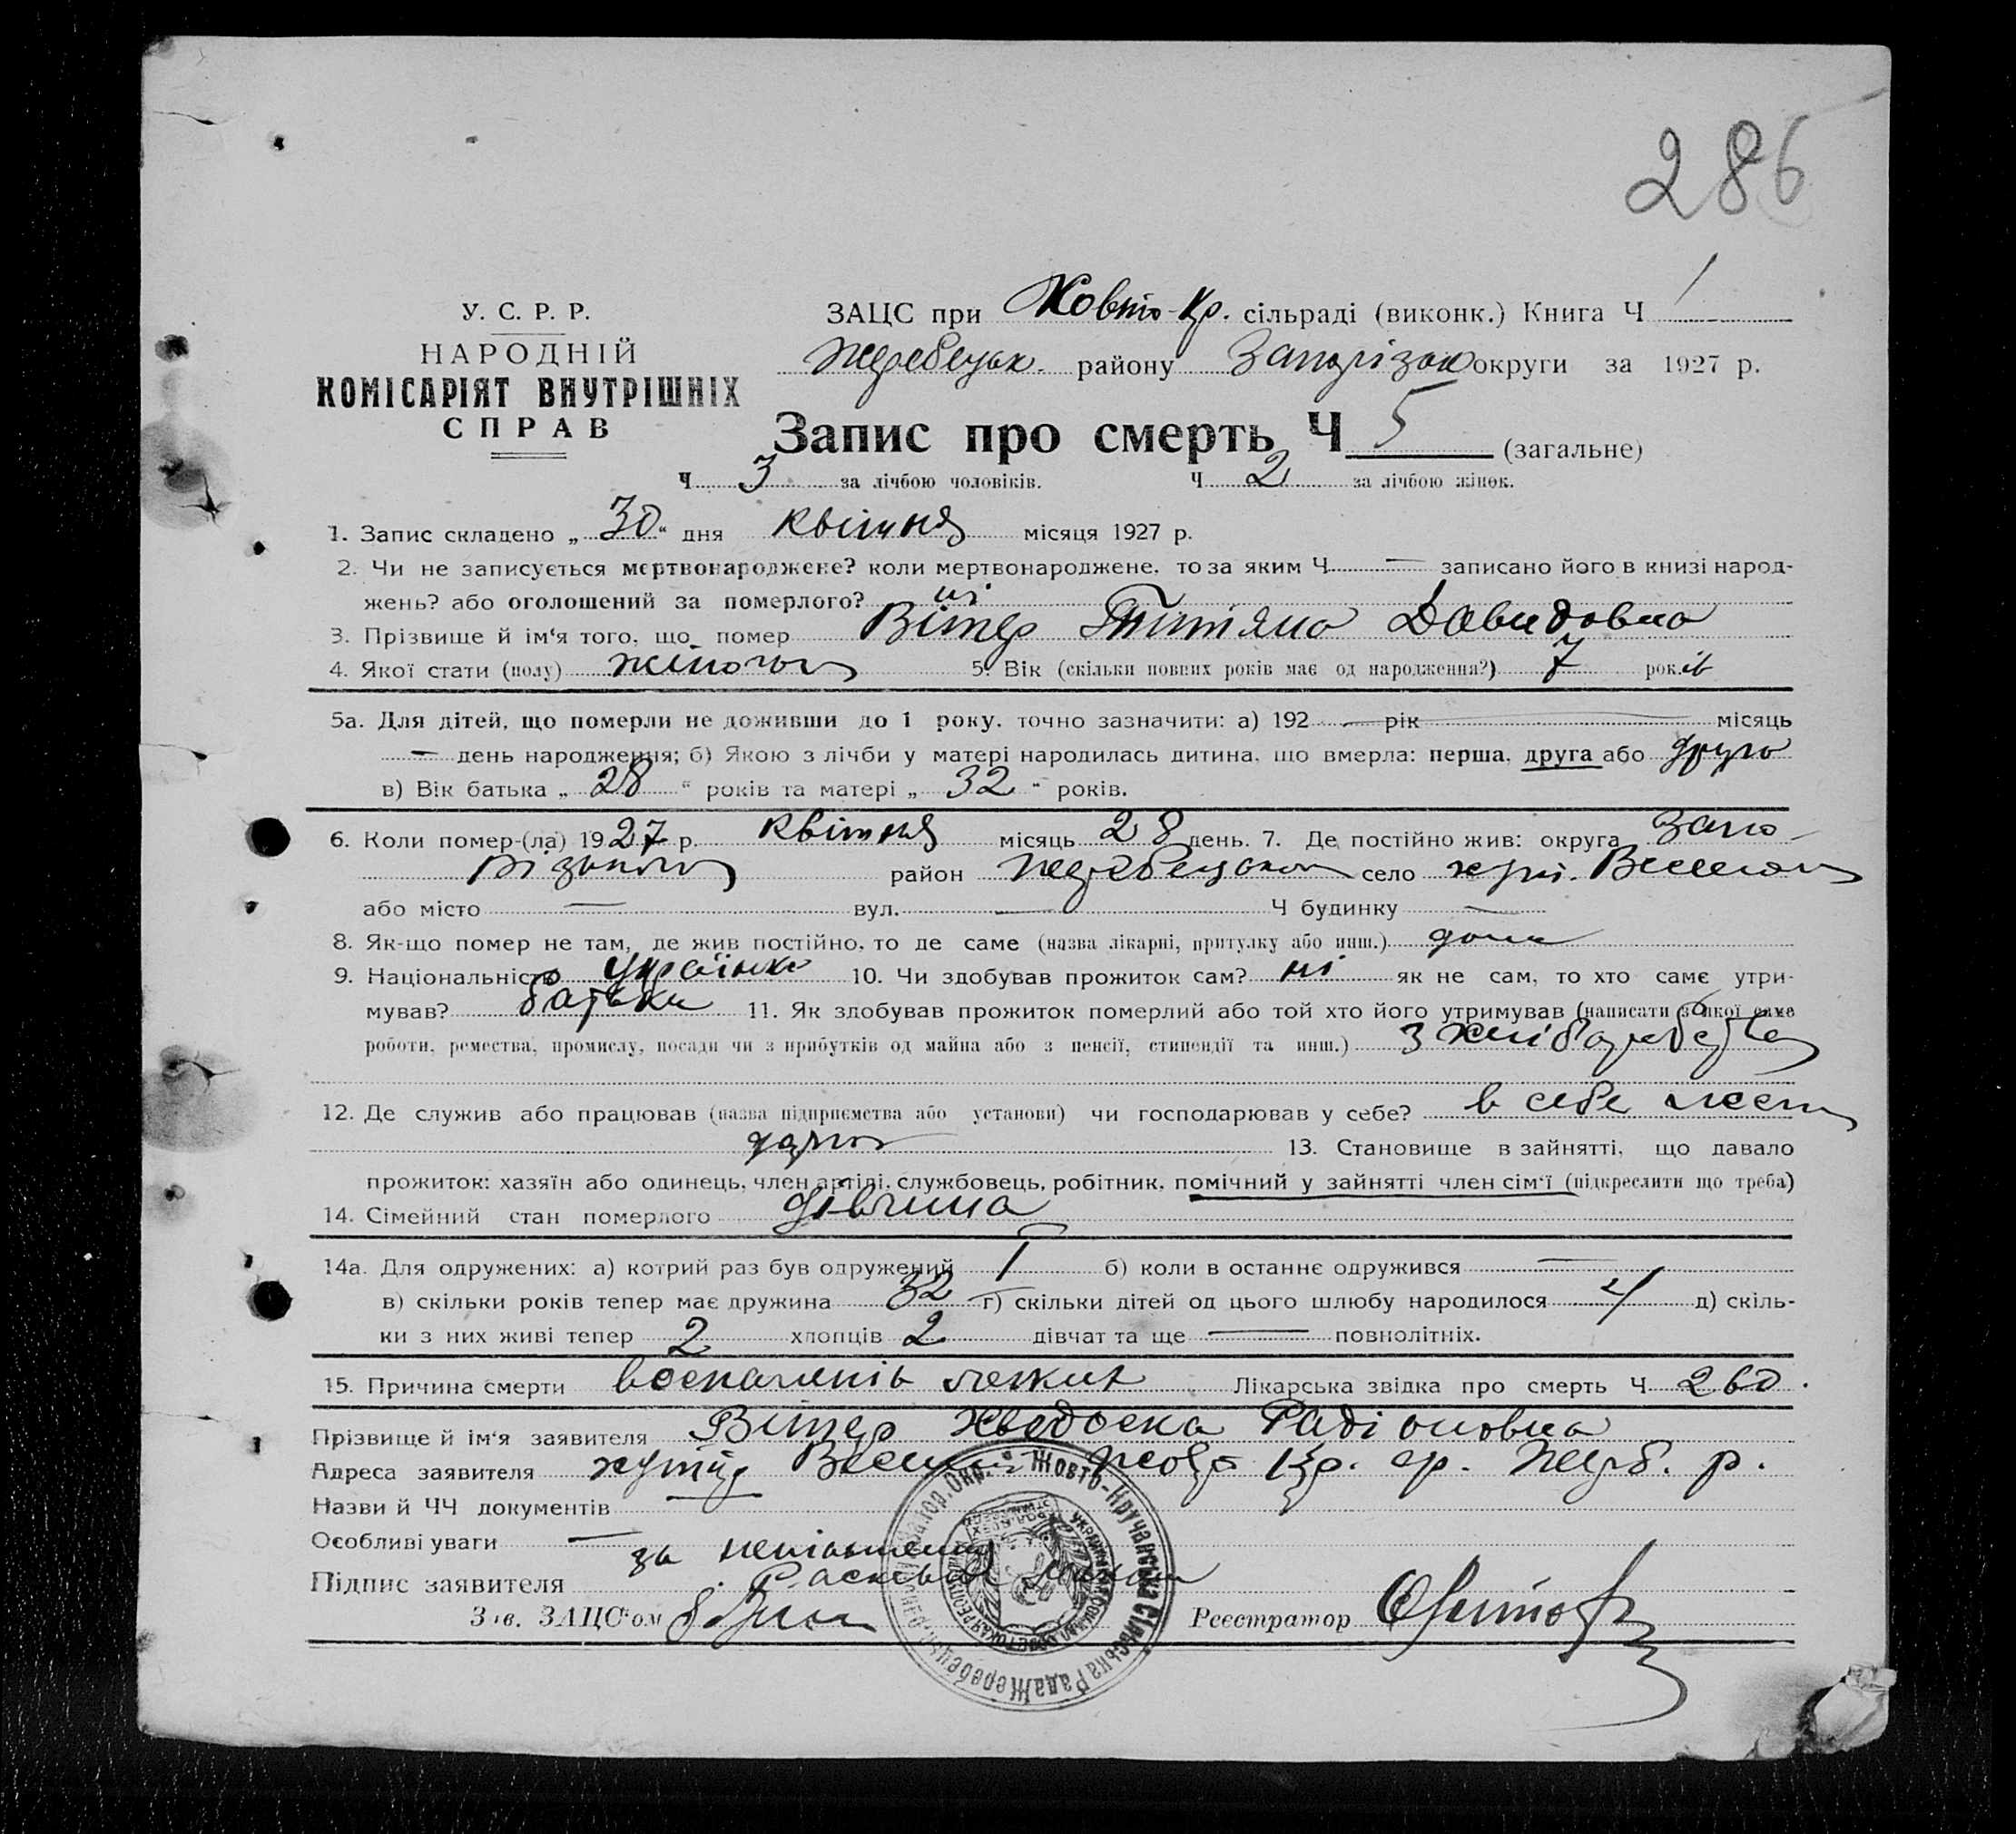 286
У. С. Р. Р.
НАРОДНІЙ
КОМІСАРІЯТ ВНУТРІШНІХ
СПРАВ
ЗАЦС при Жовто-Кр. сільраді (виконк.) Книга Ч 1
Жеребецьк. району Запорізьк округи за 1927 р.
Запис про смерть Ч 5 (загальне)
Ч 3 за лічбою чоловіків. Ч 2 за лічбою жінок.
1. Запис складено „ 30 “ дня квітня місяця 1927 р.
2. Чи не записується мертвонароджене? коли мертвонароджене, то за яким Ч — записано його в книзі народ-
жень? або оголошений за померлого? ні
3. Прізвище й ім‘я того, що помер Вітер Титяна Давидовна
4. Якої стати (полу) жіночої 5. Вік (скільки повних років має од народження?) 7 рок.ів
5а. Для дітей, що померли не доживши до 1 року, точно зазначити: а) 192 — рік місяць
— день народження; б) Якою з лічби у матері народилась дитина, що вмерла: перша, друга або друга
в) Вік батька „ 28 “ років та матері „ 32 “ років.
6. Коли помер-(ла) 1927 р. квітня місяць 28 день. 7. Де постійно жив: округа Запо-
різької район Жеребецького село хут. Веселого
або місто — вул. — Ч будинку —
8. Як-що помер не там, де жив постійно, то де саме (назва лікарні, притулку або инш.) дома
9. Національність українка 10. Чи здобував прожиток сам? ні як не сам, то хто саме утри-
мував? батьки 11. Як здобував прожиток померлий або той хто його утримував (написати з якої саме
роботи, ремества, промислу, посади чи з прибутків од майна або з пенсії, стипендії та инш.) з
12. Де служив або працював (назва підприємства або установи) чи господарював у себе? в себе
13. Становище в зайнятті, що давало
прожиток: хазяїн або одинець, член артілі, службовець, робітник, помічний у зайнятті член сім‘ї (підкреслити що треба)
14. Сімейний стан померлого дівчина
14а. Для одружених: а) котрий раз був одружений I б) коли в останнє одружився —
в) скільки років тепер має дружина 32 г) скільки дітей од цього шлюбу народилося 4 д) скіль-
ки з них живі тепер 2 хлопців 2 дівчат та ще — повнолітніх.
15. Причина смерти воспаленів легких Лікарська звідка про смерть Ч 260.
Прізвище й ім‘я заявителя Вітер Хведоска Радіоновна
Адреса заявителя хутір Веселий Жовт Кр. ср. Жереб. р.
Назви й ЧЧ документів
Особливі уваги —
Підпис заявителя за неписьменну
Зав. ЗАЦС‘ом
Реєстратор
Жовто-Кручанська Сільська Рада Жеребецьк. району Запор. Окр.